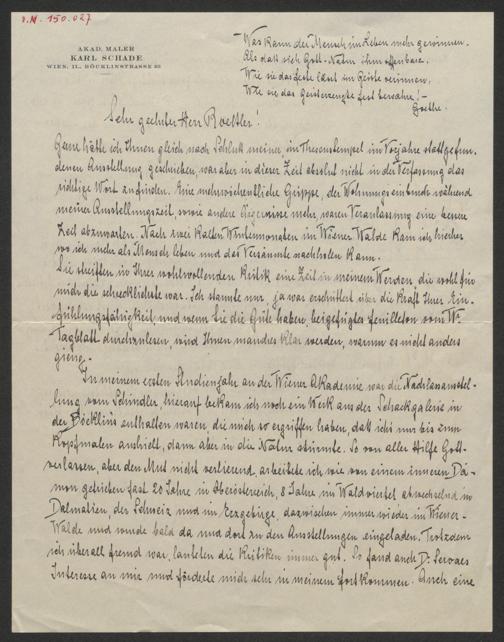 I.N. 150.027
AKAD. MALER
KARL SCHADE
WIEN, II., BÖCKLINSTRASSE
"Was kann der Mensch im Leben mehr gewinnen.
Als daß sich Gott-Natur ihm offenbare.
Wie sie das feste lässt im Geiste verrinnen,
Wie sie das Geisterzeugte fest bewahre!"
Goethe.
Sehr geehrter Herr Roessler!
Gerne hätte ich Ihnen gleich nach Schluß meiner, im Theseustempel im Vorjahre stattgefun-
denen Ausstellung geschrieben, war aber in dieser Zeit absolut nicht in der Verfassung das
richtige Wort zu finden. Eine mehrwöchentliche Grippe, der Wohnungseinbruch während
meiner Ausstellungszeit, sowie andere Ärgernisse mehr, waren Veranlassung eine bessere
Zeit abzuwarten. Nach zwei kalten Wintermonaten im Wiener Walde kam ich hierher
wo ich mehr als Mensch leben und das Versäumte nachholen kann.
Sie streiften in Ihrer wohlwollenden Kritik eine Zeit in meinem Werden, die wohl für
mich die schrecklichste war. Ich staunte nur, ja war erschüttert über die Kraft Ihrer Ein-
fühlungsfähigkeit, und wenn Sie die Güte haben, beigefügtes Feuilleton vom Wr.
Tagblatt durchzulesen, wird Ihnen manches klar werden, warum es nicht anders
gieng.
In meinem ersten Studienjahr an der Wiener Akademie war die Nachlassausstel-
lung vom Schindler, hierauf bekam ich noch ein Werk aus der Schackgalerie in
der Böcklins enthalten waren, die mich so ergriffen haben, daß ich nur bis zum
Kopfmalen aushielt, dann aber in die Natur stürmte. So von aller Hilfe Gott-
verlassen, aber den Mut nicht verlierend, arbeitete ich wie von einem inneren Dä-
mon getrieben fast 20 Jahre in Oberösterreich, 8 Jahre im Waldviertel abwechselnd in
Dalmatien, der Schweiz und im Erzgebirge, dazwischen immer wieder im Wiener-
Walde und wurde bald da und dort zu den Ausstellungen eingeladen. Trotzdem
ich überall fremd war, lauteten die Kritiken immer gut. So fand auch Dr. Servaes
Interesse an mir und förderte mich sehr in meinem Fortkommen. Auch eine